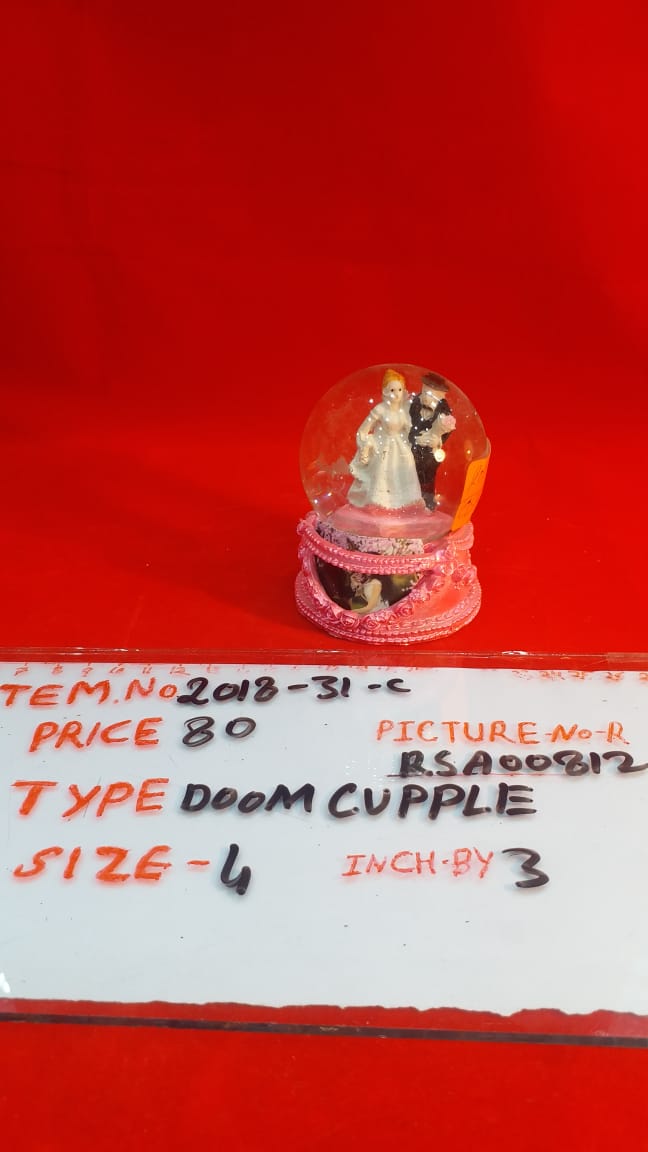 ITEM.No 2018-31-C
PRICE 80 PICTURE-No-R
RSA00812
TYPE DOOM CUPPLE
SIZE-4 INCH-BY 3